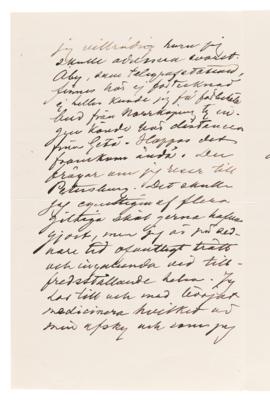 jag villrådig huru jag
skulle adressera svaret.
Åby, som telegrafstation,
finnes här ej förtecknad
ej heller kunde jag få
bud från Norrköping ty in-
gen kände här distancen
från Getå. Hoppas det
framkom ändå. Du
frågar om jag reser till
Petersburg. Det skulle
jag egentligen af flera
giltiga skäl gerna hafva
gjort, men jag är på sed-
nare tid ofantligt trött
och ingalunda vid till-
fredsställande helsa. Jag
har till och med börjat
medicinera hvilket är
min afsky och som jag